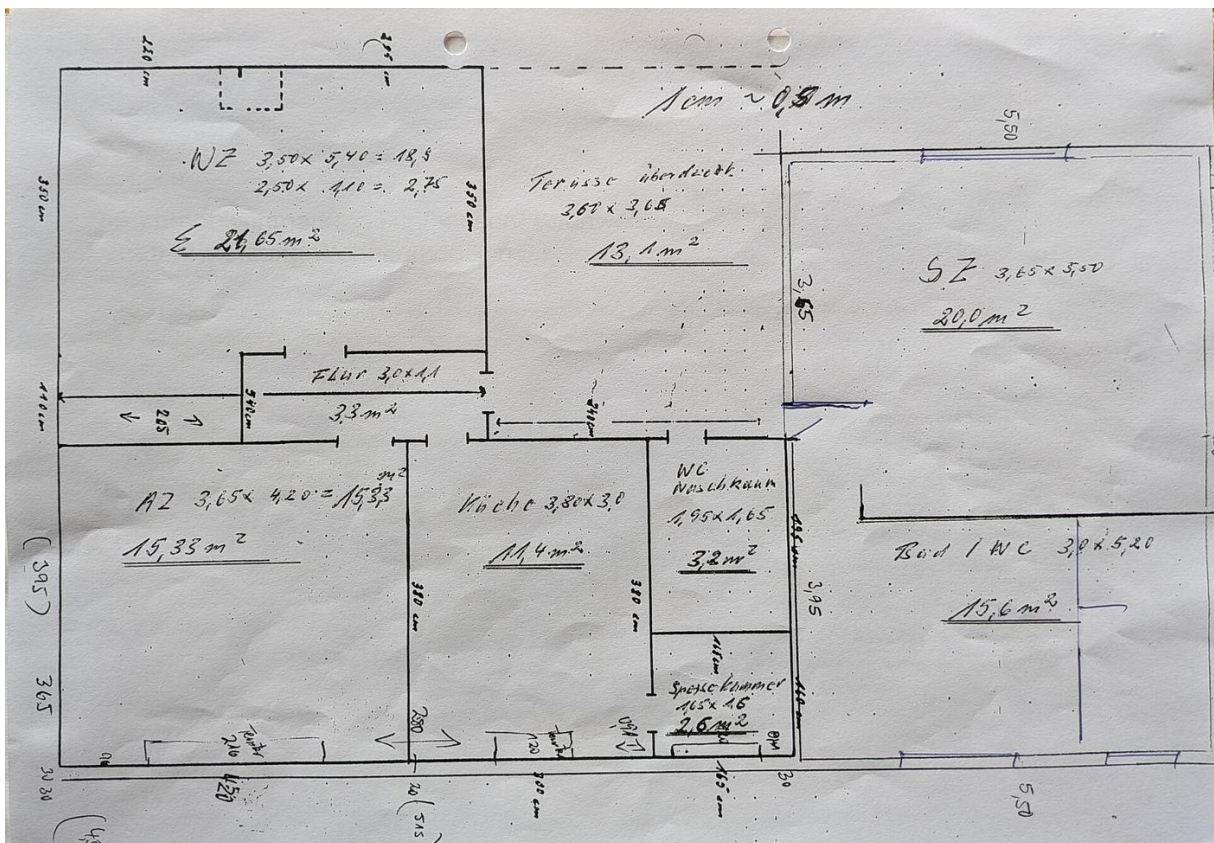 220 cm
1cm ~ 0,5 m
5,50
WZ 3,50 x 5,40 = 18,9
2,50 x 1,10 = 2,75
Σ 21,65 m²
350 cm
350 cm
Terasse überdacht
3,60 x 3,65
13,1 m²
3,65
SZ 3,65 x 5,50
20,0 m²
Flur 3,0x1,1
3,3 m²
110 cm
205
540cm
240cm
AZ 3,65 x 4,20 = 15,33 m²
15,33 m²
Küche 3,80x3,0
11,4 m²
WC
Waschraum
1,95 x 1,65
3,2 m²
195 cm
Bad / WC 3,0 x 5,20
15,6 m²
(395)
365
380 cm
380 cm
3,95
165cm
Speisekammer
165 x 1,6
2,6 m²
160 cm
Fenster
216
280
Fenster
120
30 30
420
20 (515)
300 cm
165 cm
30
5,50